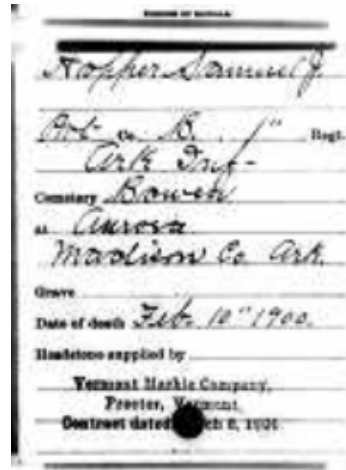 Hopper Samuel J.
Pvt Co. B. 1" Regt.
Ark Inf-
Cemetery Bowen
at Aurora
Madison Co Ark.
Grave
Date of death Feb. 10" 1900.
Headstone supplied by
Vermont Marble Company,
Proctor, Vermont,
Contract dated